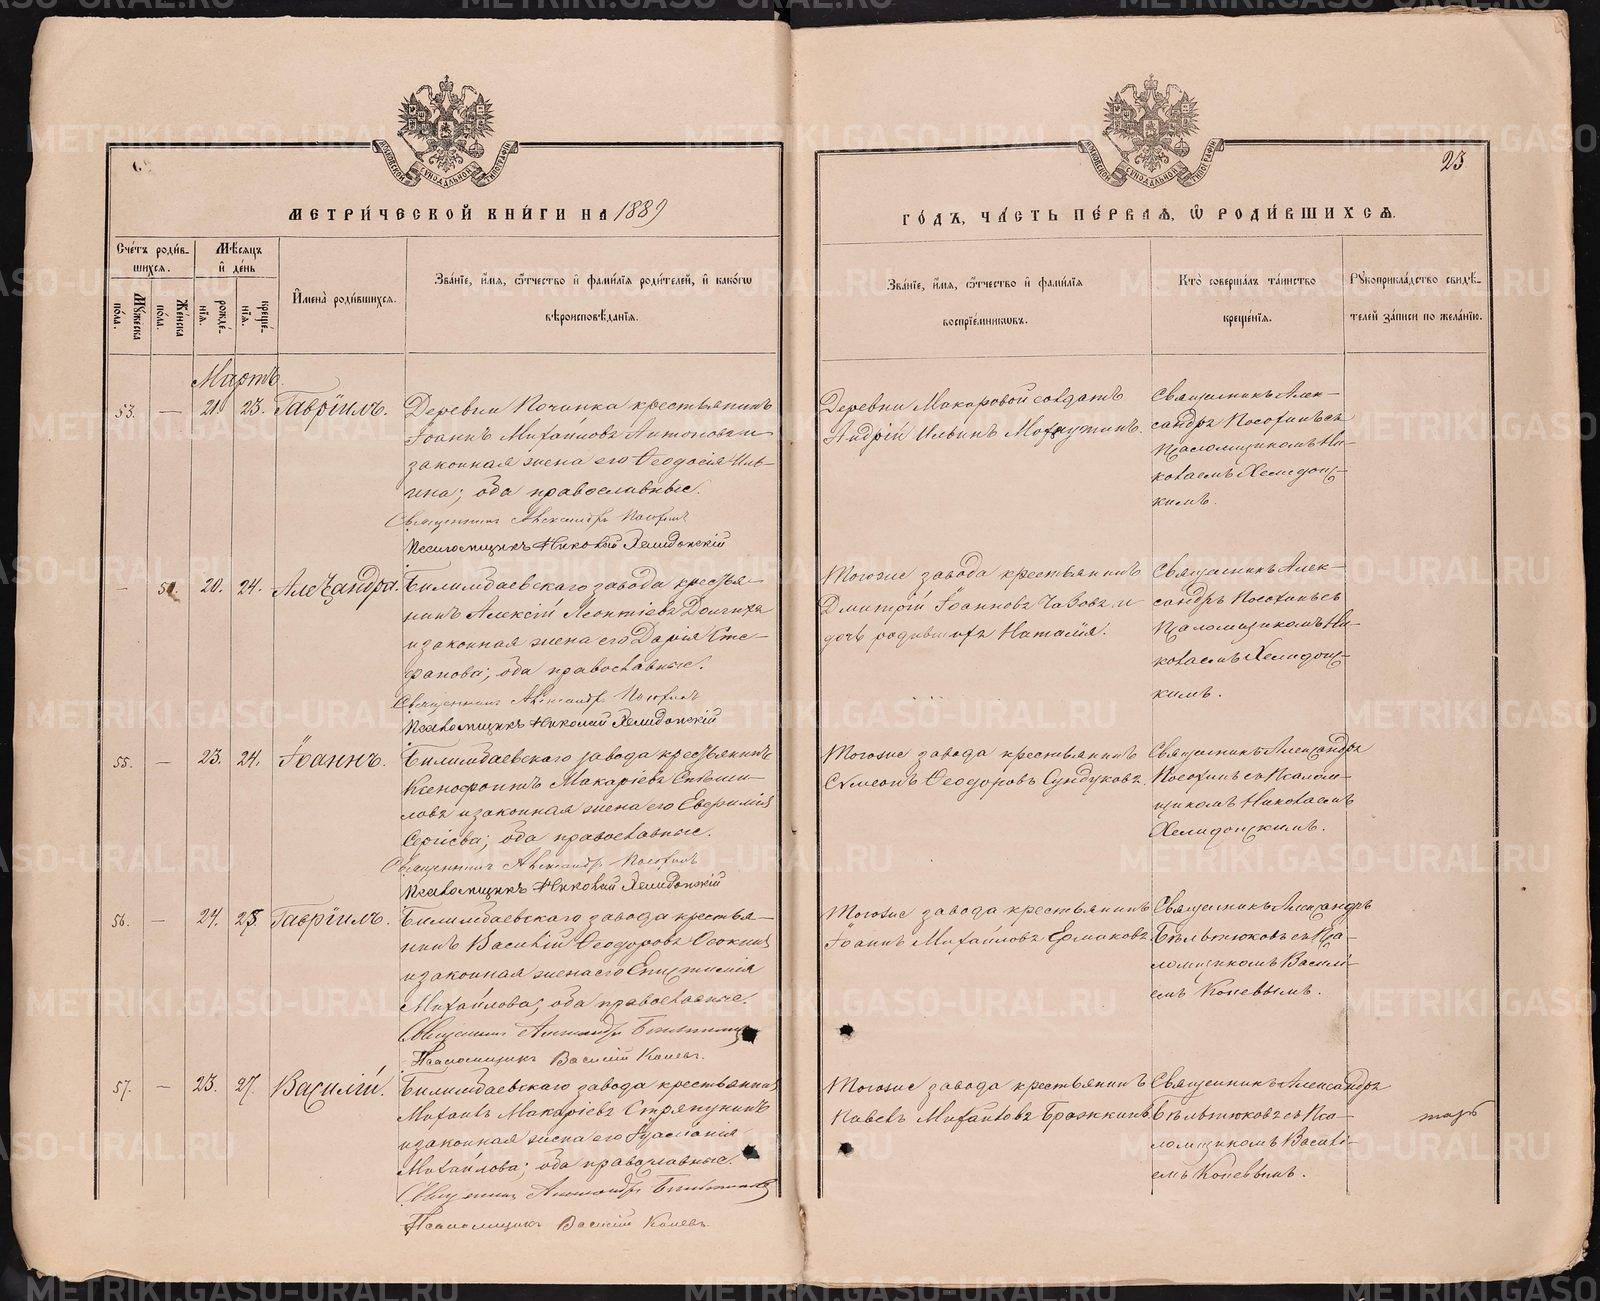 МЕТРИ́ЧЕСКОЙ КНИ́ГИ НА 1889
Сче́тъ роди́в-
шихся.
Мѣсяцъ
и҆ де́нь
Мꙋжеска
по́ла.
Же́нска
по́ла.
рожде́-
нїѧ.
креще́-
нїѧ.
И҆мена̀ роди́вшихсѧ.
Зва́нїе, и҆́мѧ, ѻ҆́тчество и҆ фами́лїѧ роди́телей, и҆ како́гѡ
вѣроисповѣ́данїѧ.
Мартъ.
53. — 21. 23. Гавріилъ.
Деревни Починка крестьянинъ
Іоаннъ Михайловъ Антоновъ и
законная жена его Ѳеодосія Иль-
ина; оба православные.
Священникъ Александръ Посохинъ
Псаломщикъ Николай Хелидонскій
— 20. 24. Александра.
Билимбаевскаго завода крестья-
нинъ Алексій Леонтіевъ
и законная жена его Дарія Сте-
фанова; оба православные.
Священникъ Александръ Посохинъ
Псаломщикъ Николай Хелидонскій
55. — 23. 24. Іоаннъ.
Билимбаевскаго завода крестьянинъ
Ксенофонтъ Макаріевъ
и законная жена его Евфимія
Сергіева; оба православные.
Священникъ Александръ Посохинъ
Псаломщикъ Николай Хелидонскій
56. — 24. 25. Гавріилъ.
Билимбаевскаго завода крестья-
нинъ Василій Ѳеодоровъ Осокинъ
и законная жена его Епистимія
Михайлова; оба православные.
Священникъ Александръ Бѣльтюковъ
Псаломщикъ Василій Коневъ.
57. — 23. 27. Василій.
Билимбаевскаго завода крестьянинъ
Михаилъ Макаріевъ Стряпунинъ
и законная жена его
Михайлова; оба православные.
Священникъ Александръ Бѣльтюковъ
Псаломщикъ Василій Коневъ
23
ГО́ДЪ, ЧА́СТЬ ПЕ́РВАѦ, Ѡ҆ РОДИ́ВШИХСѦ.
Зва́нїе, и҆́мѧ, ѻ҆́тчество и҆ фами́лїѧ
воспрїе́мникѡвъ.
Кто̀ соверша́лъ та́инство
креще́нїѧ.
Рꙋкоприкла́дство свидѣ́-
телей за́писи по жела́нїю.
Деревни Макаровой солдатъ
Андрій Ильинъ
Священникъ Алек-
сандръ Посохинъ съ
псаломщикомъ Ни-
колаемъ Хелидон-
скимъ.
Тогоже завода крестьянинъ
Дмитрій Іоанновъ Чазовъ и
дочь родившихъ Наталія.
Священникъ Алек-
сандръ Посохинъ съ
псаломщикомъ Ни-
колаемъ Хелидон-
скимъ.
Тогоже завода крестьянинъ
Сѵмеонъ Ѳеодоровъ Сундуковъ
Священникъ Александръ
Посохинъ съ псалом-
щикомъ Николаемъ
Хелидонскимъ.
Тогоже завода крестьянинъ
Іоаннъ Михайловъ Ермаковъ
Священникъ Александръ
Бѣльтюковъ съ пса-
ломщикомъ Василі-
емъ Коневымъ.
Тогоже завода крестьянинъ
Павелъ Михайловъ Бражкинъ
Священникъ Александръ
Бѣльтюковъ съ пса-
ломщикомъ Василі-
емъ Коневымъ.